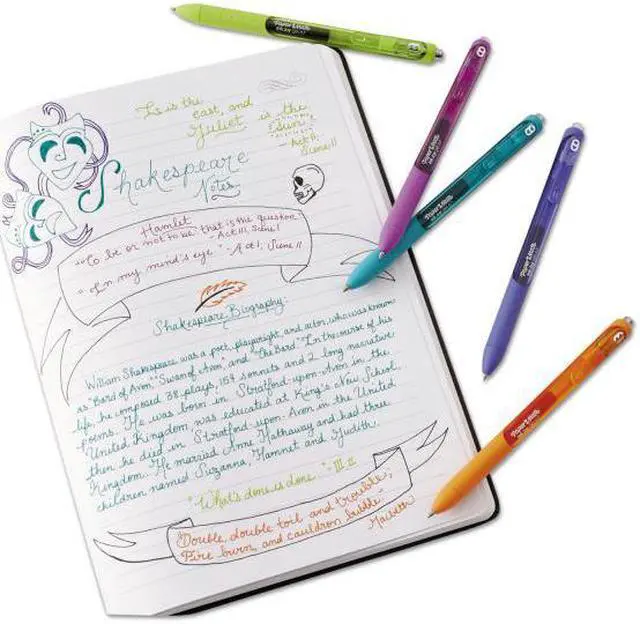 It is the
east, and
Juliet is the
Sun
- Act II,
Scene II
Shakespeare
Notes
Hamlet
"To be or not to be: that is the question"
- Act III, Scene I
"In my mind's eye" - Act I, Scene II
Shakespeare Biography:
William Shakespeare was a poet, playwright, and actor, who was known
as "Bard of Avon", "Swan of Avon", and "The Bard". In the course of his
life, he composed 38 plays, 154 sonnets and 2 long narrative
poems. He was born in Stratford-upon-Avon in the
United Kingdom, was educated at King's New School,
then he died in Stratford-upon-Avon in the United
Kingdom. He married Anne Hathaway and had three
children named Suzanna, Hamnet and Judith.
"What's done is done." - III.II
"Double, double toil and trouble,
Fire burn, and cauldron bubble."
Macbeth
Paper Mate
Paper Mate
Paper Mate
Paper Mate
Paper Mate